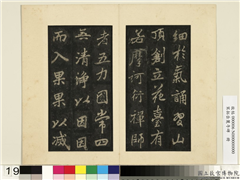 細於氣誦習山
頂創立花臺有
若摩訶衍禪師
者五力圓常四
無清淨以因因
而入果果以滅
19
國立故宮博物院